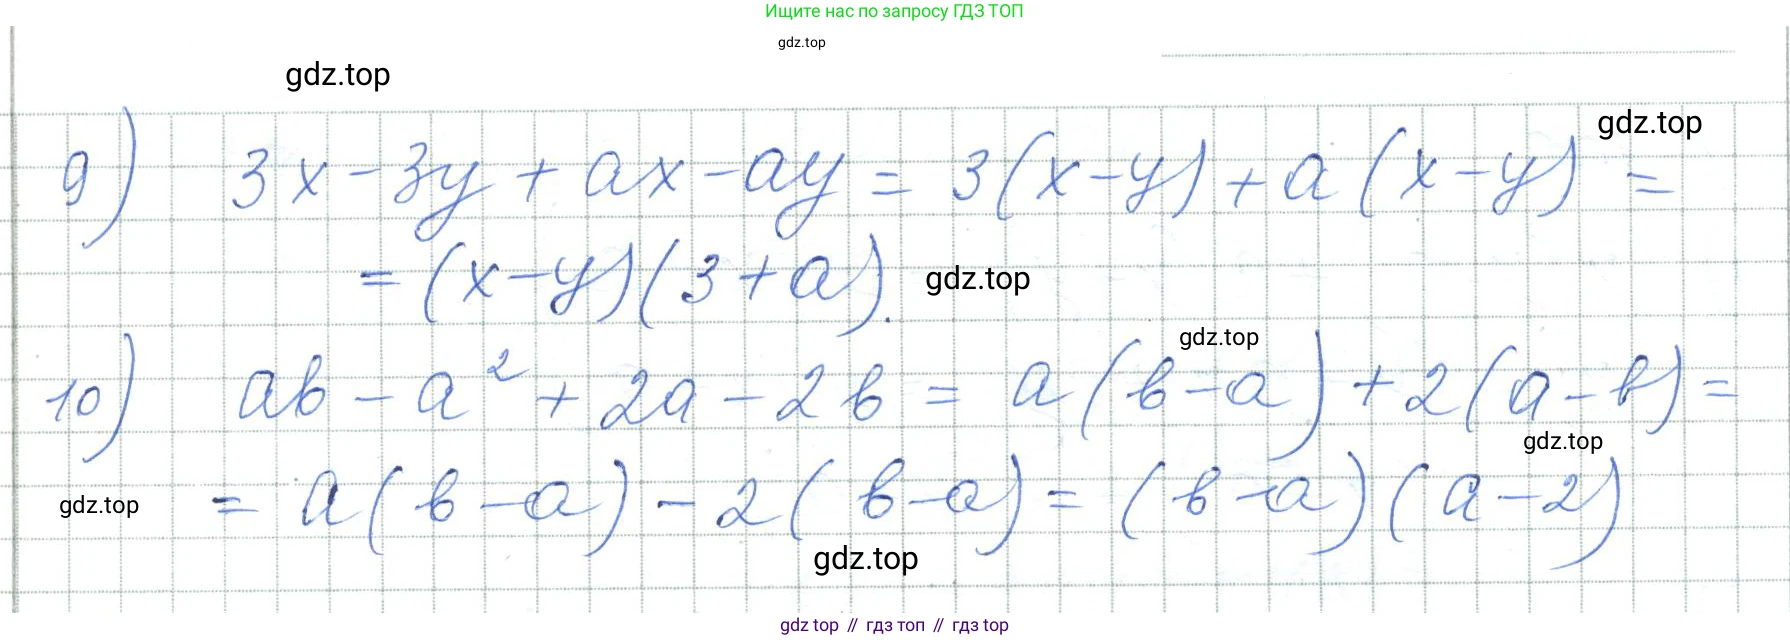 Ищите нас по запросу ГДЗ ТОП
gdz.top
gdz.top
gdz.top
9) 3x - 3y + ax - ay = 3(x - y) + a(x - y) =
= (x - y)(3 + a). gdz.top
gdz.top
10) ab - a² + 2a - 2b = a(b - a) + 2(a - b) =
gdz.top
gdz.top = a(b - a) - 2(b - a) = (b - a)(a - 2)
gdz.top
gdz top // гдз топ // гдз top